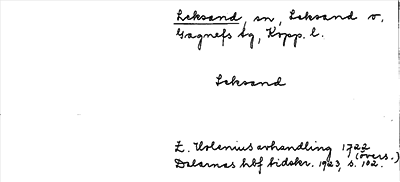 Leksand, sn, Leksand o.
Gagnefs tg, Kopp. l.
Leksand
E. Holenius avhandling 1722
(övers.)
Dalarnas hbf tidskr. 1923, s. 102.